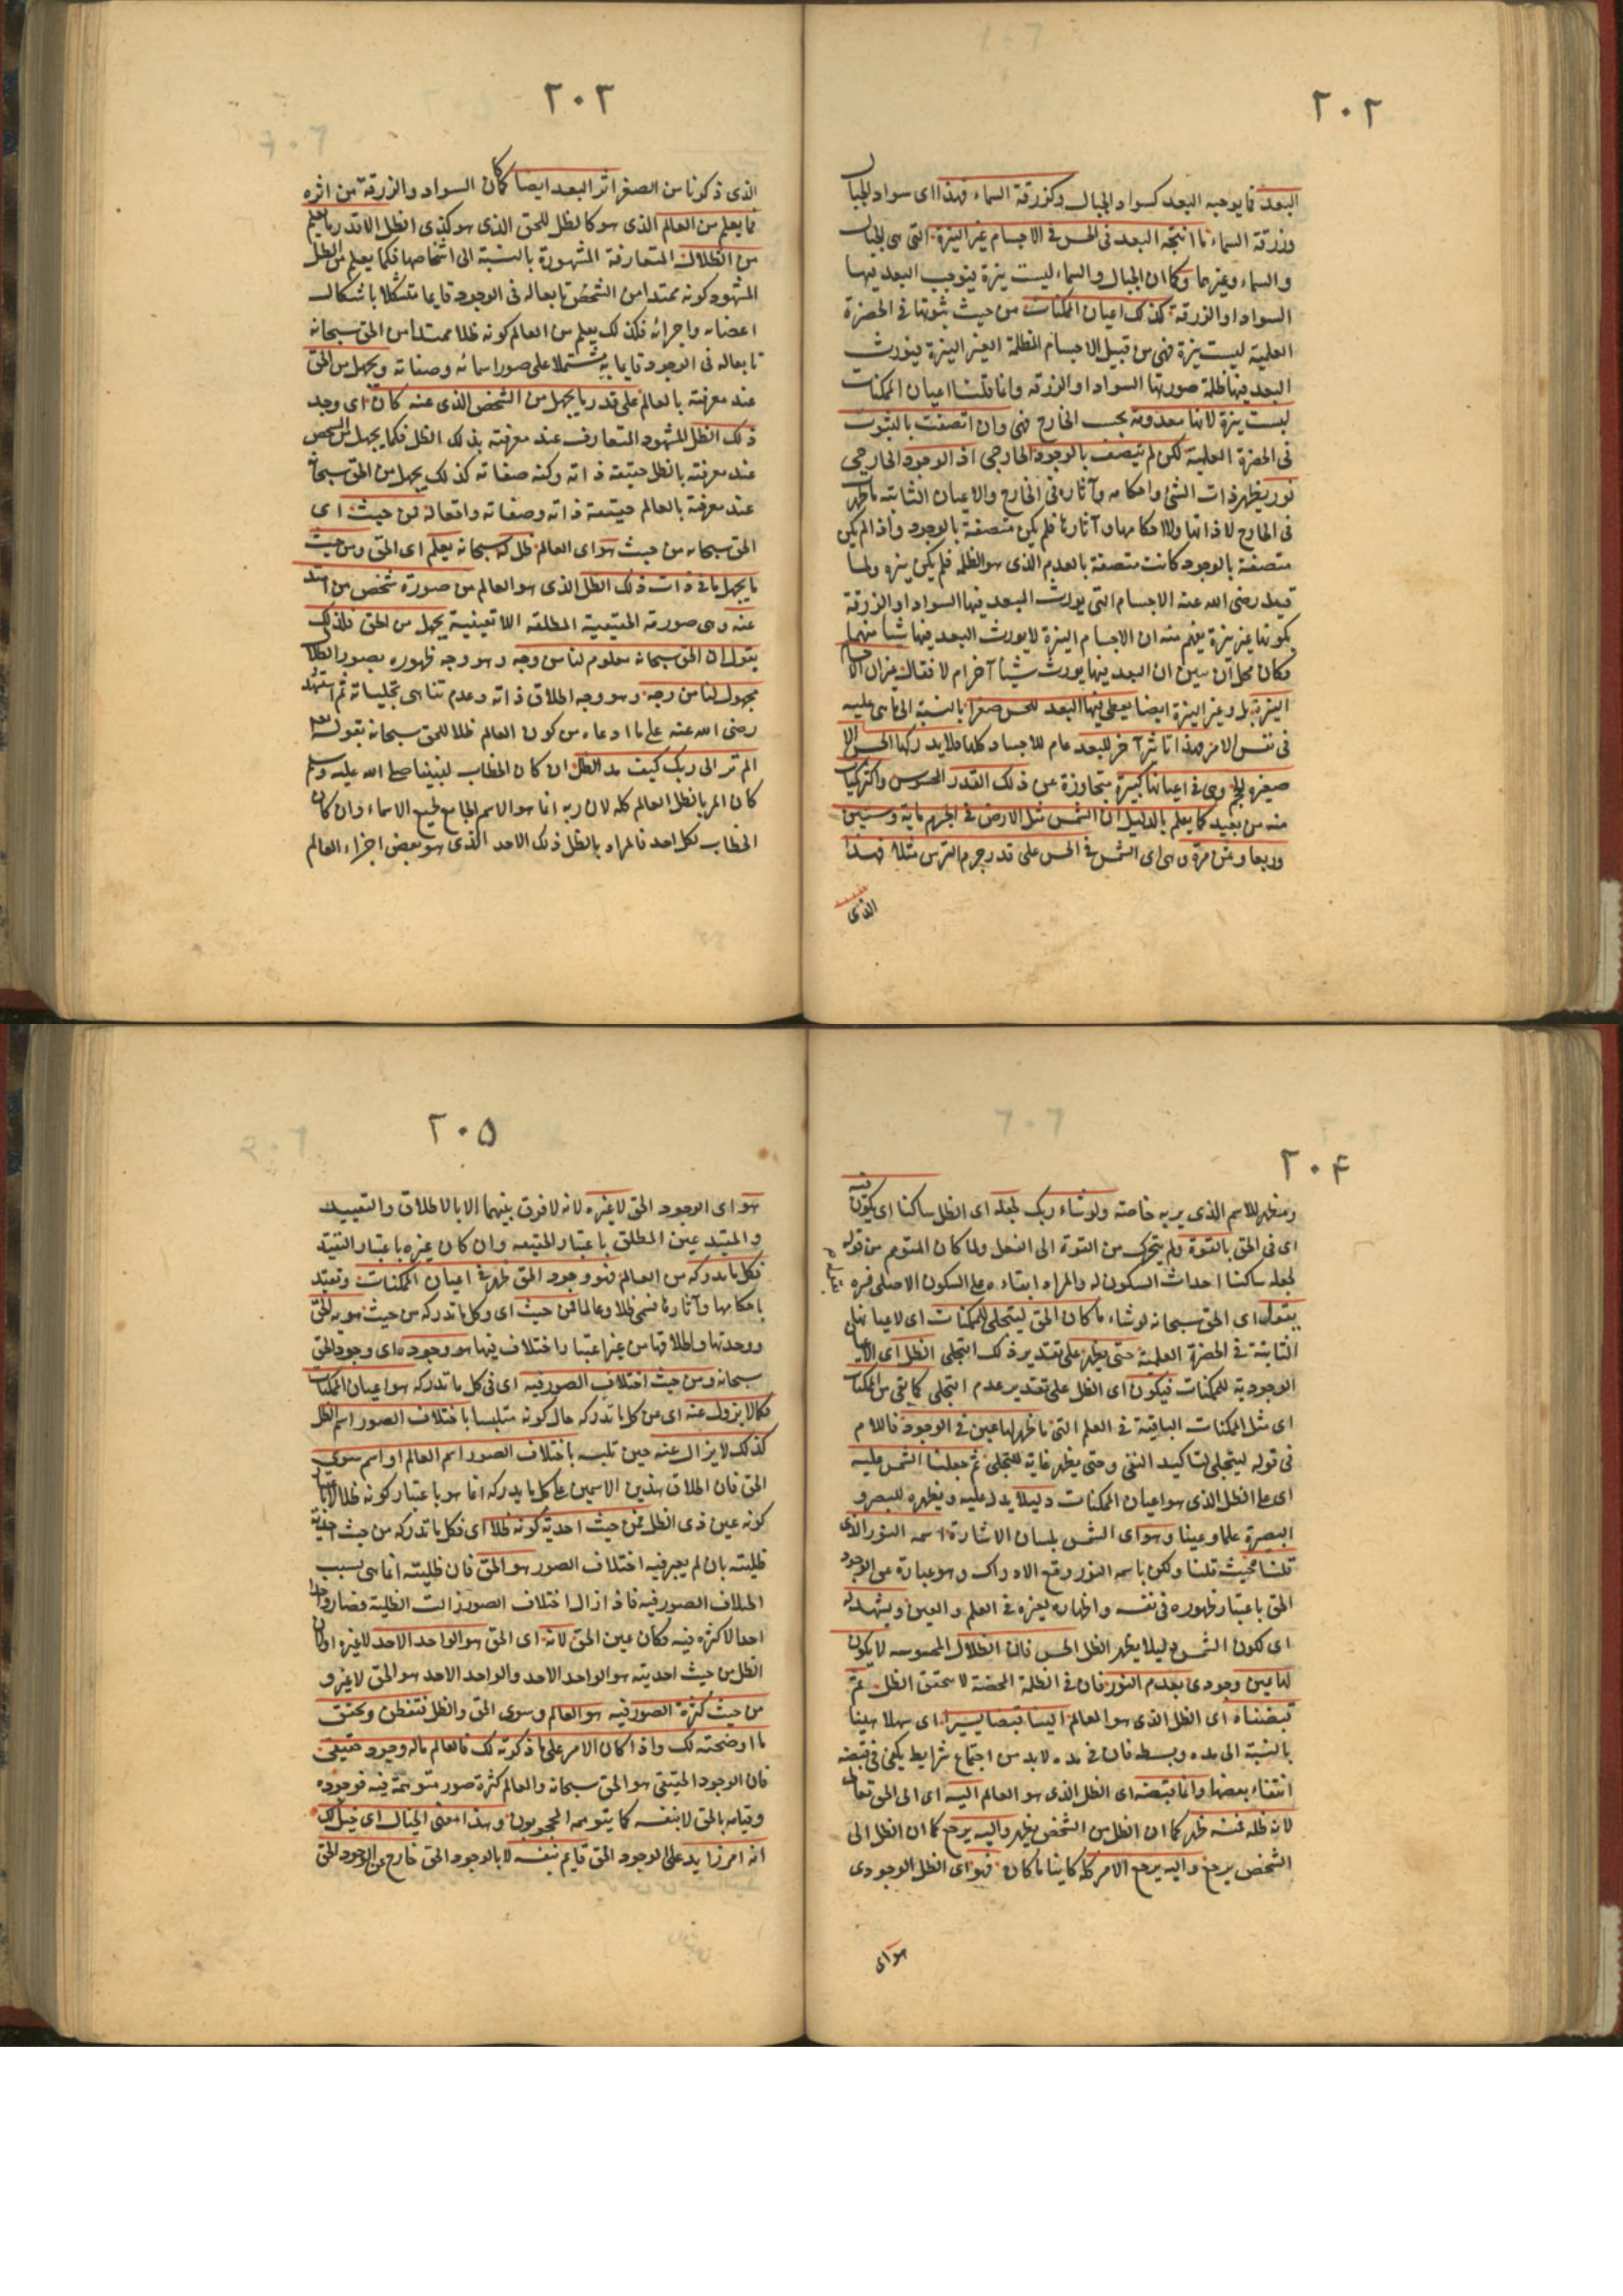 ٢٠٢
البعد فما يوجبه البعد كسواد الجبال وكزرقة السماء فهذا اى سواد الجبال
وزرقة السماء ما انتجه البعد فى الحس فى الاجسام غير النيرة التى هى الجبال
والسماء وغيرهما وكما ان الجبال والسماء ليست نيرة فيوجب البعد فيها
السواد او الزرقة كذلك اعيان الممكنات من حيث ثبوتها فى الحضرة
العلمية ليست نيرة فهى من قبيل الاجسام المظلمة الغير النيرة فيورث
البعد فيها ظلمة صورتها السواد او الزرقه وانما قلنا اعيان الممكنات
ليست نيرة لانها معدومة بحسب الخارج فهى وان اتصفت بالثبوت
فى الحضرة العلمية لكن لم تتصف بالوجود الخارجى اذ الوجود الخارجى
نور يظهر ذات الشئ واحكامه وآثاره فى الخارج والاعيان الثابته ما ظهر
فى الخارج لا ذاتها ولا احكامها وآثارها فلم يكن متصفة بالوجود واذا لم يكن
متصفة بالوجود كانت متصفة بالعدم الذى هو الظلمه فلم يكن نيره ولما
قيد رضى الله عنه الاجسام التى يورث البعد فيها السواد او الزرقة
بكونها غير نيرة يفهم منه ان الاجسام النيرة لا يورث البعد فيها شيئا منهما
وكان محل ان يبين ان البعد فيها يورث شيئا آخر ام لا فقال غير ان الاجسام
النيرة بل وغير النيرة ايضا يعطى فيها البعد للحس صغرا بالنسبة الى ما هى عليه
فى نفس الامر فهذا تاثير آخر للبعد عام للاجساد كلها فلا يدركها الحس الا
صغيرة الحجم وهى فى اعيانها كبيرة متجاوزة عن ذلك القدر المحسوس واكثر كميات
منه من بعيد كما يعلم بالدليل ان الشمس مثل الارض فى الجرم ماية وستين
وربعا وثمن مرة وهى اى الشمس فى الحس على قدر جرم الترس مثلا فهذا
الذى
٢٠٣
الذى ذكرنا من الصغر اثر البعد ايضا كما كان السواد والزرقة من اثره
فما يعلم من العالم الذى هو كالظل للحق الذى هو كذى الظل الا قدر ما يعلم
من الظلال المتعارفة المشهورة بالنسبة الى اشخاصها فكما يعلم من الظل
المشهود كونه ممتدا من الشخص تابعا له فى الوجود قايما متشكلا باشكال
اعضائه واجزائه فكذلك يعلم من العالم كونه ظلا ممتدا من الحق سبحانه
تابعا له فى الوجود قايما به مشتملا على صور اسمائه وصفاته ويجهل من الحق
عند معرفته بالعالم على قدر ما يجهل من الشخص الذى عنه كان اى وجد
ذلك الظل المشهود المتعارف عند معرفته بذلك الظل فكما يجهل من الشخص
عند معرفته بالظل حقيقة ذاته وكنه صفاته كذلك يجهل من الحق سبحانه
عند معرفته بالعالم حقيقة ذاته وصفاته وافعاله فمن حيث اى
الحق سبحانه من حيث هو اى العالم ظل له سبحانه يعلم اى الحق ومن حيث
ما يجهل ما فى ذات ذلك الظل الذى هو العالم من صورة شخص من امتد
عنه وهى صورته الحقيقية المطلقه اللاتعينية يجهل من الحق فلذلك
يقول ان الحق سبحانه معلوم لنا من وجه وهو وجه ظهوره بصور الظلال
مجهول لنا من وجه وهو وجه اطلاق ذاته وعدم تناهى تجلياته ثم استشهد
رضى الله عنه على ما ادعاه من كون العالم ظلا للحق سبحانه بقوله تعالى
الم تر الى ربك كيف مد الظل ان كان الخطاب لنبينا صلى الله عليه وسلم
كان المراد بالظل العالم كله لان ربه انما هو الاسم الجامع لجميع الاسماء وان كان
الخطاب لكل احد فالمراد بالظل ذلك الاحد الذى هو بعض اجزاء العالم
٢٠۴
ومظهر للاسم الذى يربه خاصته ولو شاء ربك لجعله اى الظل ساكنا اى يكون فيه
اى فى الحق بالقوة ولم يتحرك من القوة الى الفعل ولما كان المتوهم من قوله
لجعله ساكنا احداث السكون له والمراد ابقاءه على السكون الاصلى فسره
يقول اى الحق سبحانه لو شاء ما كان الحق ليتجلى للممكنات اى لاعيانها
الثابتة فى الحضرة العلمية حتى يظهر على تقدير ذلك التجلى الظل اى الاعيان
الوجودية للممكنات فيكون اى الظل على تقدير عدم التجلى كما بقى من الممكنات
اى مثل الممكنات الباقية فى العلم التى ما ظهر لها عين فى الوجود فاللام
فى قوله ليتجلى لتاكيد النفى وحتى يظهر غاية للتجلى ثم جعلنا الشمس عليه
اى على الظل الذى هو اعيان الممكنات دليلا يدل عليه ويظهره للبصر و
البصيرة علما وعينا وهو اى الشمس بلسان الاشارة اسمه النور الذى
قلنا حيث قلنا ولكن باسمه النور وقع الادراك وهو عبارة عن الوجود
الحق باعتبار ظهوره فى نفسه واظهاره لغيره فى العلم والعين ويشهد له
اى لكون الشمس دليلا يظهر الظل الحس فان الظلال المحسوسه لا يكون
لها عين وجودى بعدم النور فان فى الظلمة المحضة لا يتحقق الظل ثم
قبضناه اى الظل الذى هو العالم الينا قبضا يسيرا اى سهلا هينا
بالنسبة الى مده وبسطه فان فى مده لا بد من اجتماع شرايط يكفى فى قبضه
انتفاء بعضها وانما قبضه اى الظل الذى هو العالم اليه اى الى الحق تعالى
لانه ظله فمنه ظهر كما ان الظل من الشخص يظهر واليه يرجع كما ان الظل الى
الشخص يرجع واليه يرجع الامر كله كاينا ما كان فهو اى الظل الوجودى
هو اى
٢٠۵
هو اى الوجود الحق لا غيره لانه لا فرق بينهما الا بالاطلاق والتقييد
والمقيد عين المطلق باعتبار الحقيقه وان كان غيره باعتبار التقيد
فكل ما ندركه من العالم فهو وجود الحق ظهر فى اعيان الممكنات وتقيد
باحكامها وآثارها فسمى ظلا وعالما فمن حيث اى وكل ما تدركه من حيث هوية الحق
ووحدتها واطلاقها من غير اعتبار اختلاف فيها هو وجوده اى وجود الحق
سبحانه ومن حيث اختلاف الصور فيه اى فى كل ما تدركه هو اعيان الممكنات
فكما لا يزول عنه اى من كل ما تدركه حال كونه متلبسا باختلاف الصور اسم الظل
كذلك لا يزال عنه حين تلبسه باختلاف الصور اسم العالم او اسم سوى
الحق فان اطلاق هذين الاسمين على كل ما يدركه انما هو باعتبار كونه ظلا لا باعتبار
كونه عين ذى الظل فمن حيث احدية كونه ظلا اى فكل ما تدركه من حيث احدية
ظليته بان لم يعبر فيه اختلاف الصور هو الحق فان ظليته انما هى بسبب
اختلاف الصور فيه فاذا زال اختلاف الصور زالت الظلية فصار واحدا
احدا لا كثرة فيه فكان عين الحق لانه اى الحق هو الواحد الاحد لا غيره او كان
الظل من حيث احديته هو الواحد الاحد والواحد الاحد هو الحق لا غيره و
من حيث كثرة الصور فيه هو العالم وسوى الحق والظل فتفطن وتحقق
ما اوضحته لك واذا كان الامر على ما ذكرته لك فالعالم ماله وجود حقيقى
فان الوجود الحقيقى هو الحق سبحانه والعالم كثرة صور متوهمة فيه فوجوده
وقيامه بالحق لا بنفسه كما يتوهمه المحجوبون وهذا معنى الخيال اى خيل لك
انه امر زايد على الوجود الحق قايم بنفسه لا بالوجود الحق خارج عن الوجود الحق